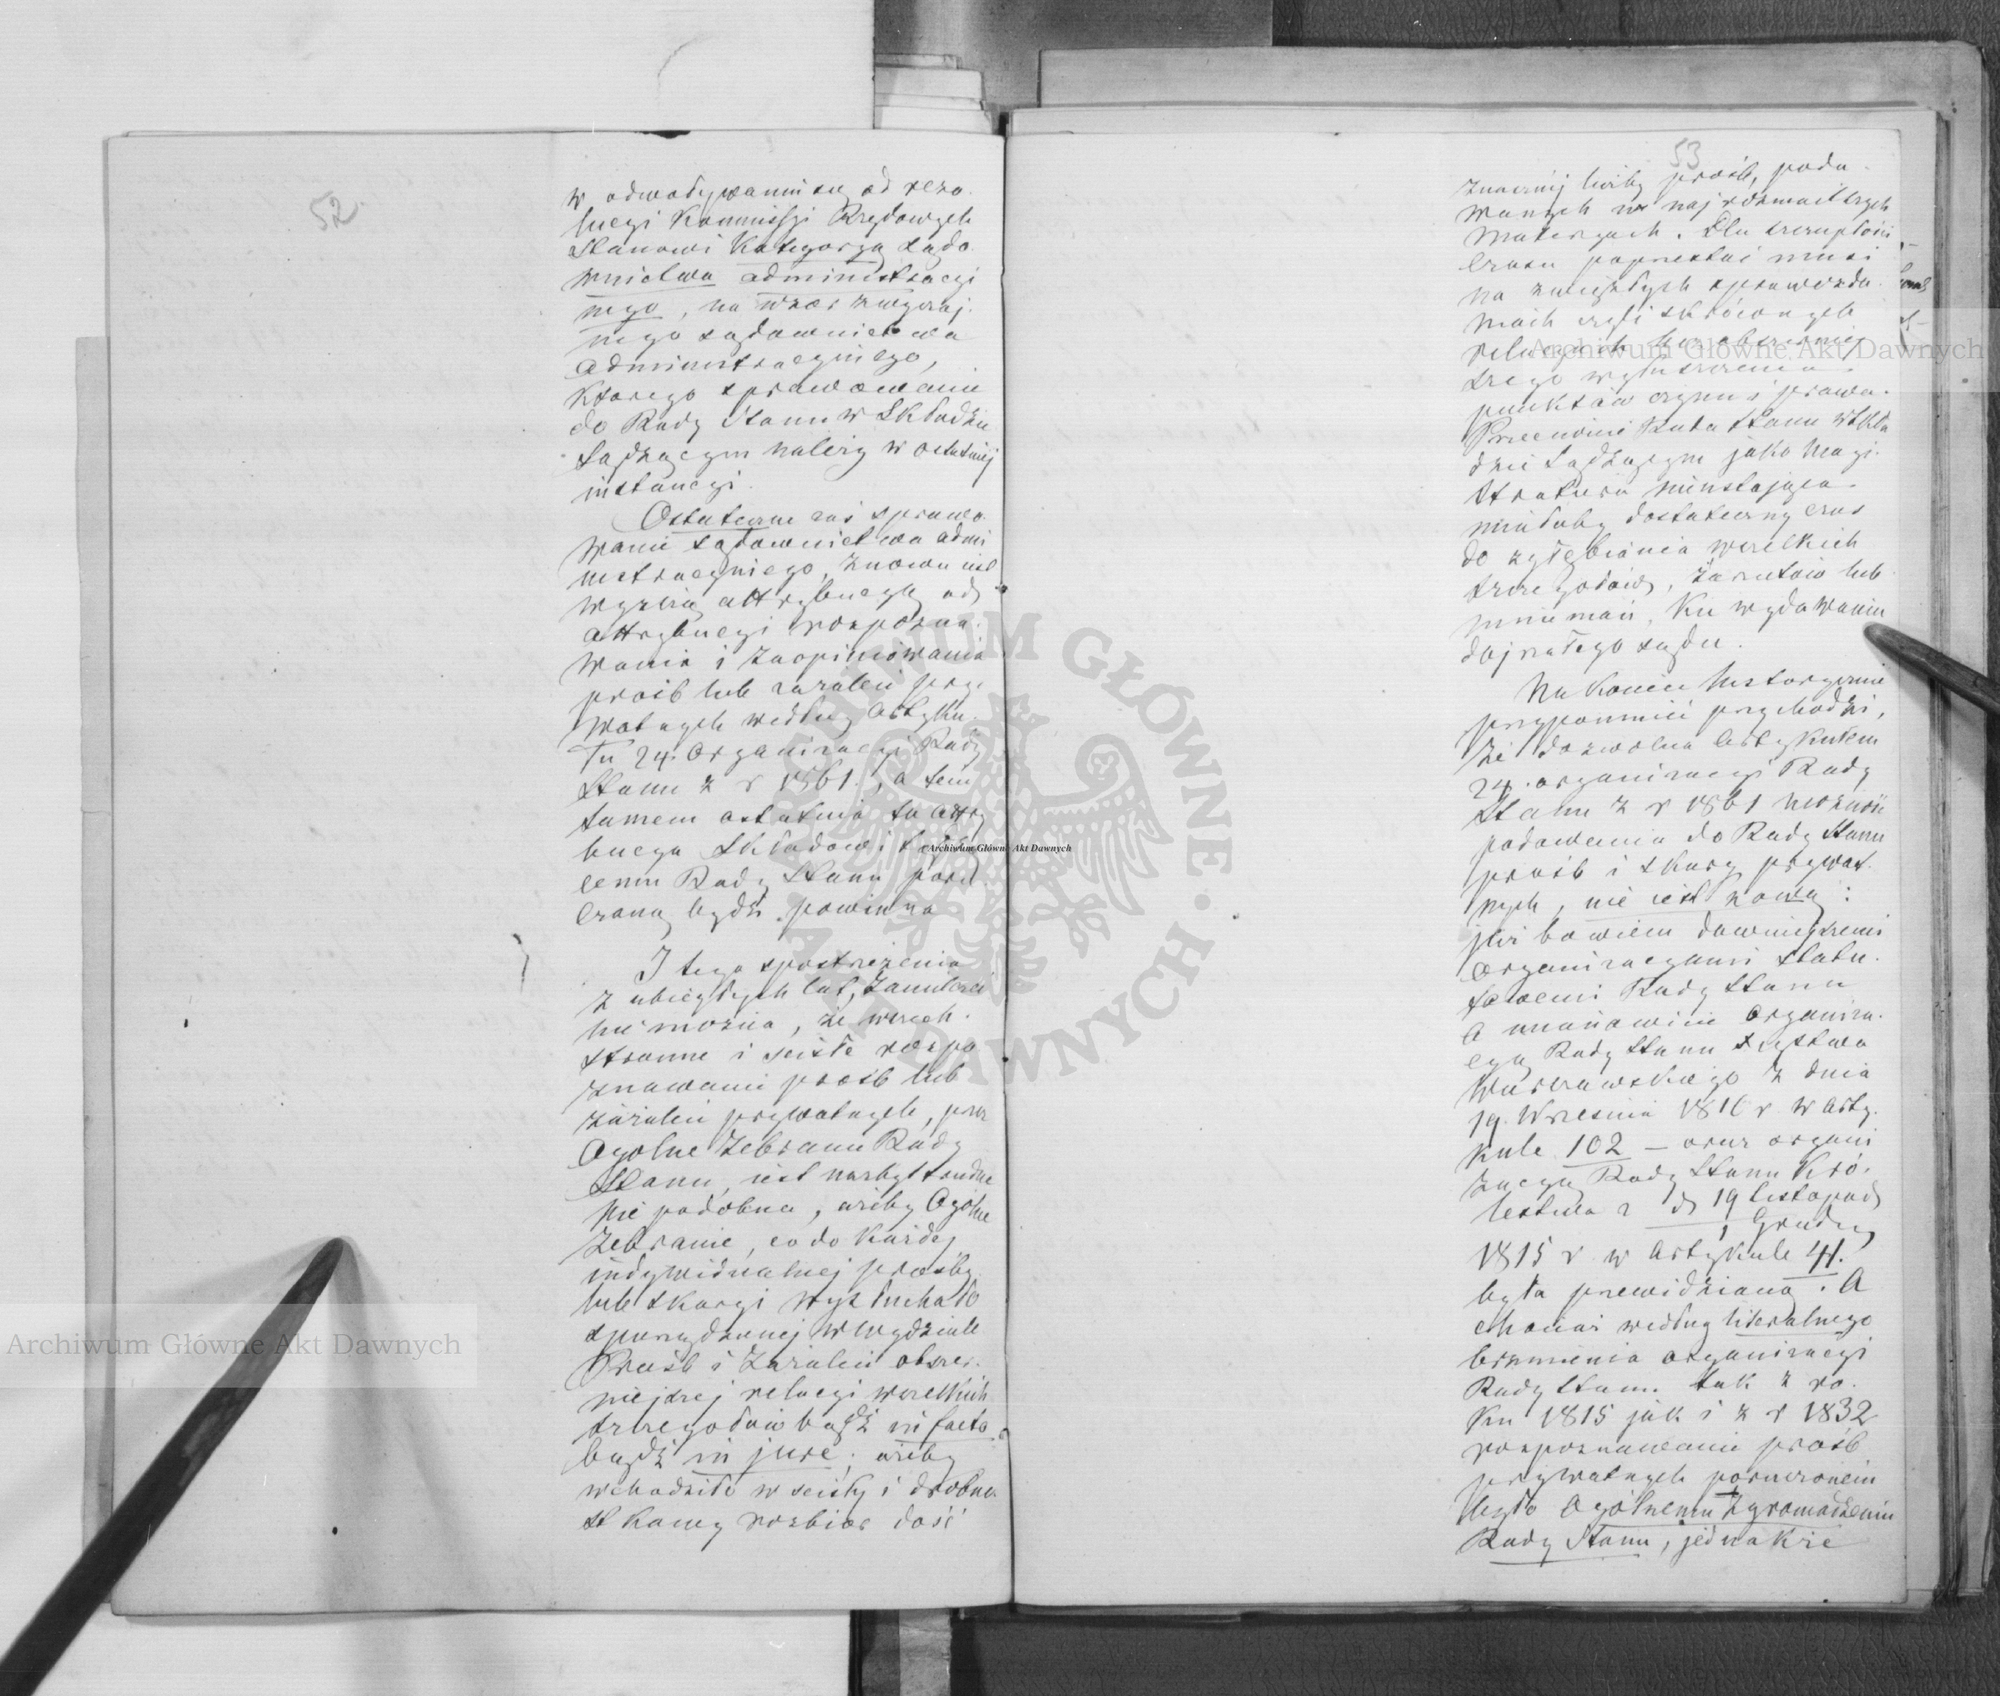 52
w odwoływaniu się od rezo-
lucyi Kommissyi Rządowych
stanowi Kategoryą sądo-
wnictwa administracyj
nego, na wzór zwyczaj-
nego sądownictwa
administracyjnego,
którego sprawowanie
do Rady Stanu w Składzie
Sądzącym należy w ostatniej
instancyi.
Ostateczne zaś sprawo-
wanie sądownictwa admi
nistracyjnego, znowu jest
wyższą attrybucyą od
attrybucyi rozpozna-
wania i zaopiniowania
próśb lub zażaleń pry-
watnych według artyku-
łu 24. Organizacyi Rady
Stanu z r 1861., a tem
samem ostatnia ta attry
bucya Składowi Sądzą
cemu Rady Stanu poru
czoną bydź powinna
I tego spostrzeżenia
z ubiegłych lat, zamilczeć
nie można, że wszech-
stronne i ścisłe rozpo
znawanie próśb lub
zażaleń prywatnych, przez
Ogólne Zebranie Rady
Stanu, jest nazbyt trudne
Nie podobna, ażeby Ogólne
Zebranie, co do każdej
indywidualnej prośby
lub skargi wysłuchało
sporządzonej w Wydziale
Próśb i Zażaleń obszer-
niejszej relacyi wszelkich
szczegółów bądź in facto
bądź in jure, ażeby
wchodziło w ścisły i drobno
stkowy rozbiór dość
53
znacznej liczby próśb, poda-
wanych w najrozmaitszych
materyach. Dla szczupłości
czasu poprzestać musi
na zwięzłych sprawozda-
niach czyli skróconych
relacyach bez obszerniej
szego wyłuszczenia
punktów czynu i prawa.
Przeciwnie Rada Stanu w Skła
dzie Sądzącym jako Magi-
stratura nieustająca
miałaby dostateczny czas
do zgłębiania wszelkich
szczegółów, zarzutów lub
mniemań, ku wydawaniu
dojrzałego sądu.
Na koniec historycznie
przypomnieć przychodzi,
że dozwolna artykułem
24. organizacyi Rady
Stanu z r 1861 możność
podawania do Rady Stanu
próśb i skarg prywat-
nych, nie jest nową:
już bowiem dawniejszemi
organizacyami Statu-
towemi Rady Stanu
a mianowicie organiza-
cyą Rady Stanu Xięstwa
Warszawskiego z dnia
19. Września 1810 r. w arty-
kule 102 – oraz organi
zacyą Rady Stanu Kró-
lestwa z d 19 listopada
1 Grudnia
1815 r. w artykule 41.
była przewidzianą. A
chociaż według literalnego
brzmienia organizacyi
Rady Stanu tak z ro-
ku 1815 jak i z r 1832
rozpoznawanie próśb
prywatnych poruczonem
było Ogólnemu Zgromadzeniu
Rady Stanu, jednakże
Archiwum Główne Akt Dawnych
Archiwum Główne Akt Dawnych
Archiwum Główne Akt Dawnych
ARCHIWUM GŁÓWNE AKT DAWNYCH